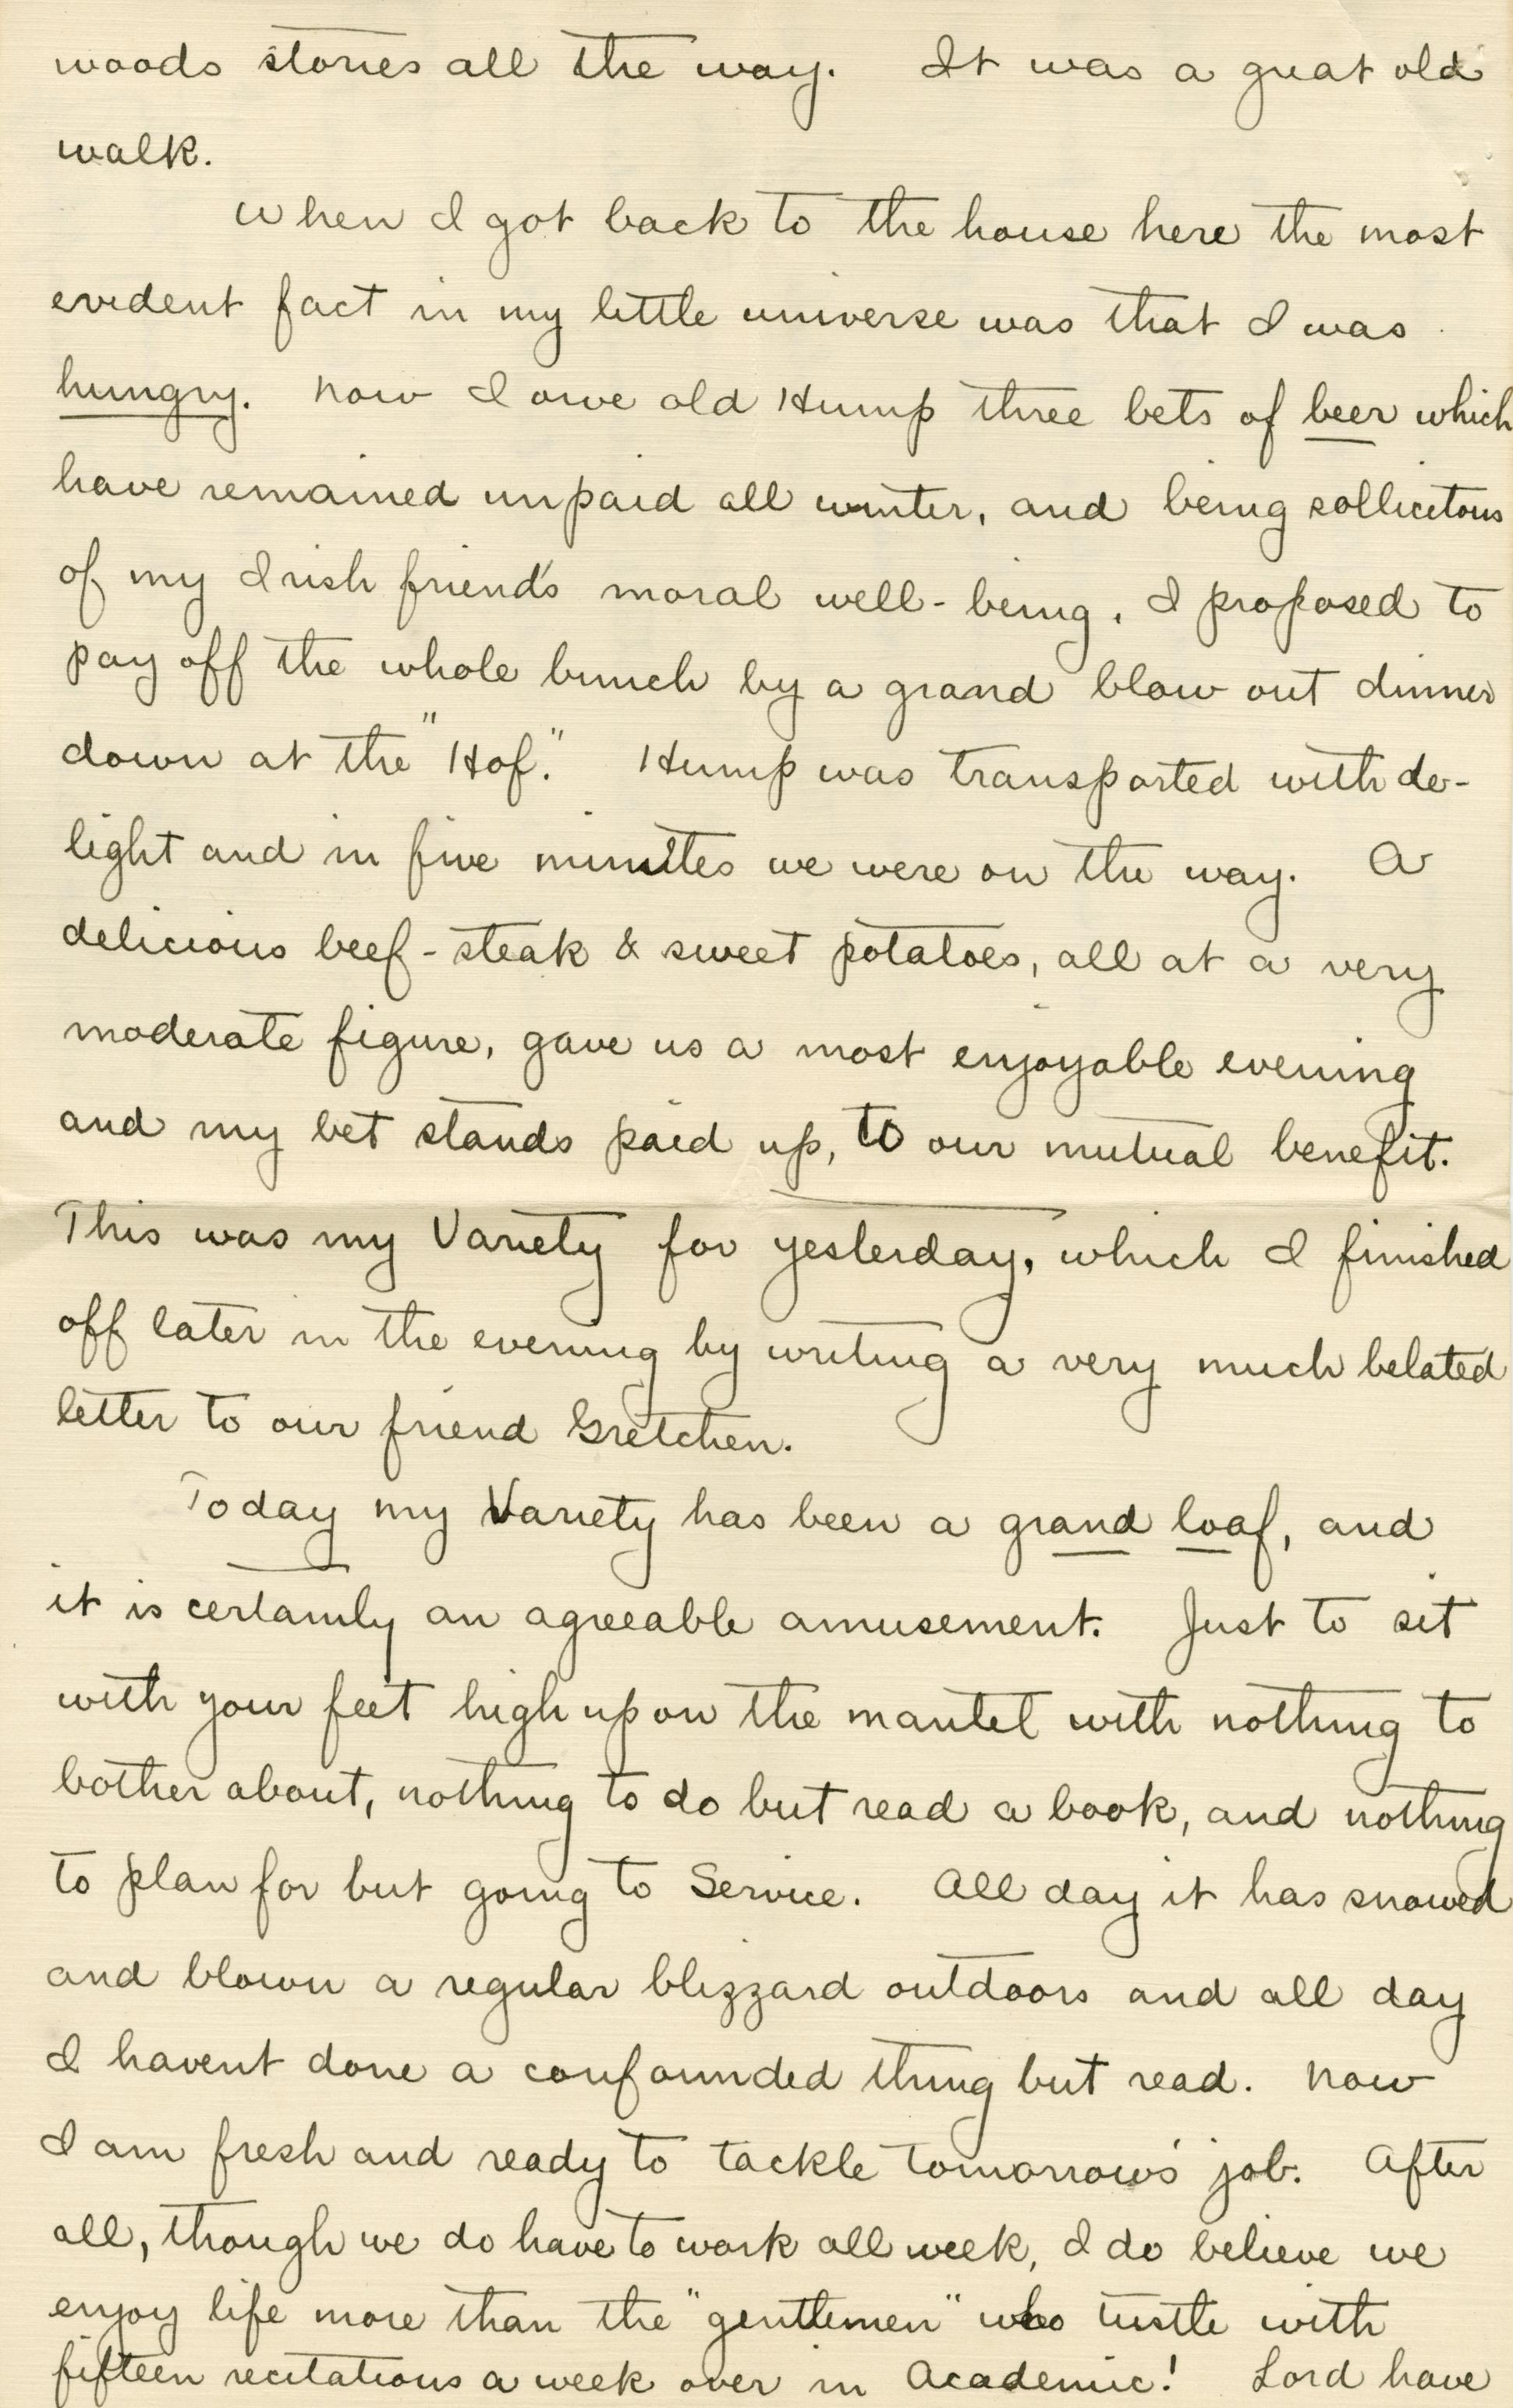 woods stories all the way. It was a great old
walk.
When I got back to the house here the most
evident fact in my little universe was that I was
hungry. Now I owe old Hump three bets of beer which
have remained unpaid all winter, and being sollicitous
of my Irish friend's moral well-being, I proposed to
pay off the whole bunch by a grand blow out dinner
down at the "Hof." Hump was transported with de-
light and in five minutes we were on the way. A
delicious beef-steak & sweet potatoes, all at a very
moderate figure, gave us a most enjoyable evening
and my bet stands paid up, to our mutual benefit.
This was my Variety for yesterday, which I finished
off later in the evening by writing a very much belated
letter to our friend Gretchen.
Today my Variety has been a grand loaf, and
it is certainly an agreeable amusement. Just to sit
with your feet high up on the mantel with nothing to
bother about, nothing to do but read a book, and nothing
to plan for but going to Service. All day it has snowed
and blown a regular blizzard outdoors and all day
I havent done a confounded thing but read. Now
I am fresh and ready to tackle tomorrow's job. After
all, though we do have to work all week, I do believe we
enjoy life more than the "gentlemen" who tustle with
fifteen recitations a week over in Academic! Lord have